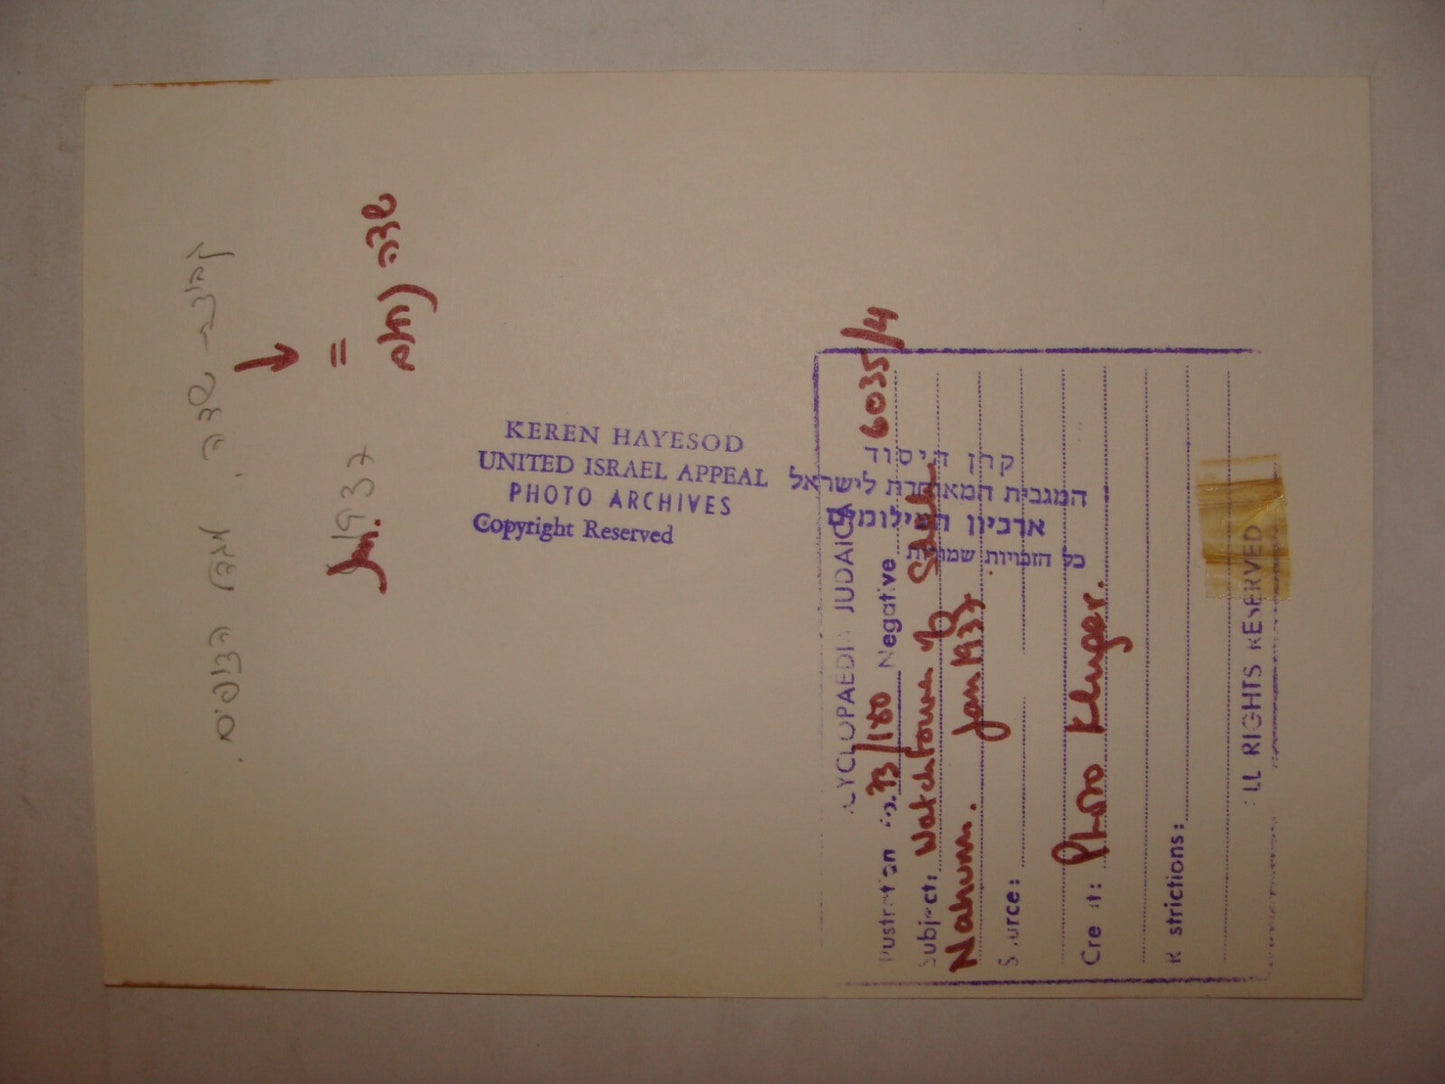 קבוצת שדה, מגדל הצופים.
Jan. 1937 = שדה נחום
KEREN HAYESOD
UNITED ISRAEL APPEAL
PHOTO ARCHIVES
Copyright Reserved
קרן היסוד
המגבית המאוחדת לישראל
ארכיון הצילומים
כל הזכויות שמורות
CYCLOPAEDIA JUDAICA
lustration No. 93/180 Negative 6035/4
Subject: Watchtower of Sadeh
Nahum. Jan 1937
Source:
Credit: Photo Kluger.
Restrictions:
ALL RIGHTS RESERVED